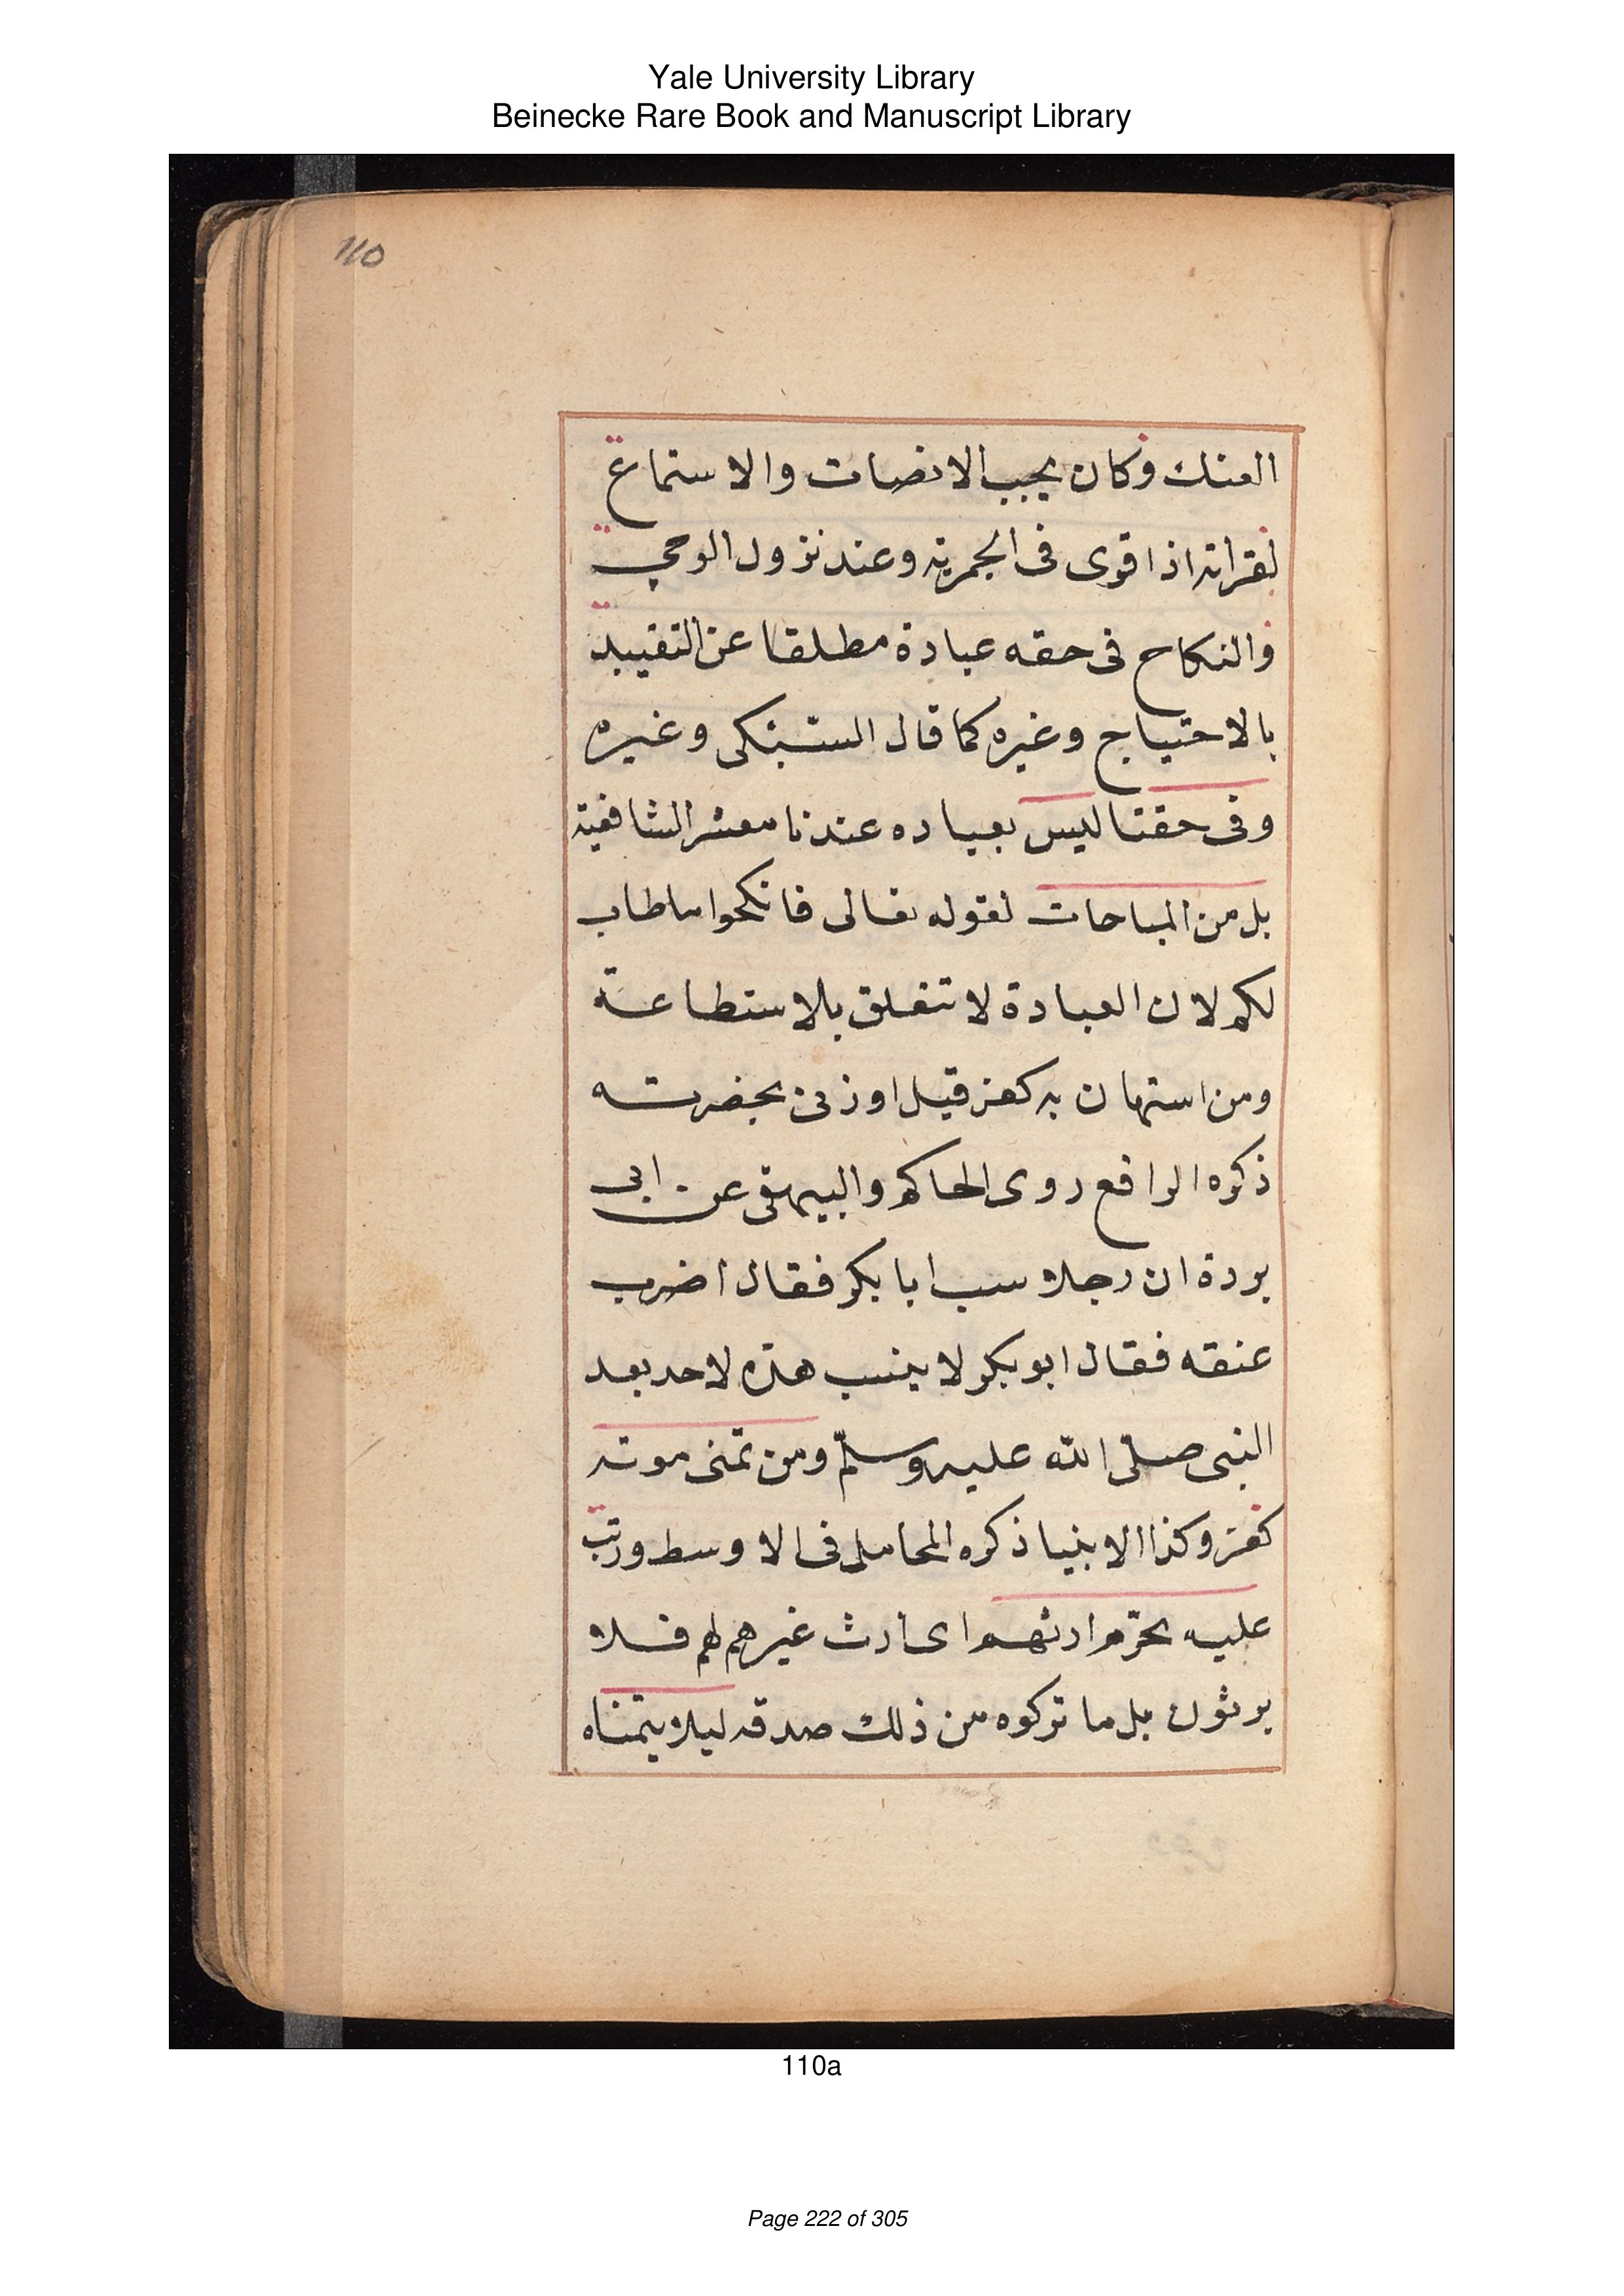 Yale University Library
Beinecke Rare Book and Manuscript Library
110
العنك وكان يجب الانصات والاستماع
لقراته اذا قوى فى الجهرية وعند نزول الوحي
والنكاح فى حقه عبادة مطلقا عن التقييد
بالاحتياج وغيره كما قال السبكى وغيره
وفى حقنا ليس بعباده عندنا معشر الشافعية
بل من المباحات لقوله تعالى فانكحوا ما طاب
لكم لان العبادة لا تتعلق بالاستطاعة
ومن استهان به كفر قيل او زنى بحضرته
ذكره الرافع روى الحاكم والبيهقى عن ابى
بردة ان رجلا سب ابا بكر فقال اضرب
عنقه فقال ابو بكر لا ينسب هذه لاحد بعد
النبى صلى الله عليه وسلم ومن تمنى موته
كفر وكذا الابنيا ذكره المحاملى فى الاوسط ورتب
عليه تحرم ارثهم اى ارث غيرهم لهم فلا
يرثون بل ما تركوه من ذلك صدقه ليلا يتمناه
110a
Page 222 of 305